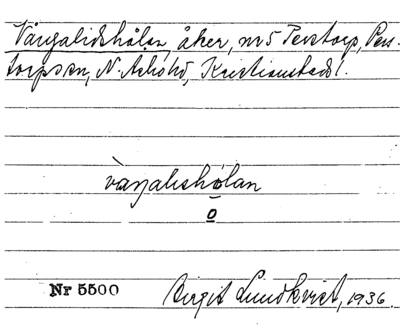 Vångalidshålan, åker, nr 5 Perstorp, Pers-
torps sn, N. Åsbo hd, Kristianstads l.
vàŋalısholan
o
Nr 5500
Birgit Lundkvist, 1936.